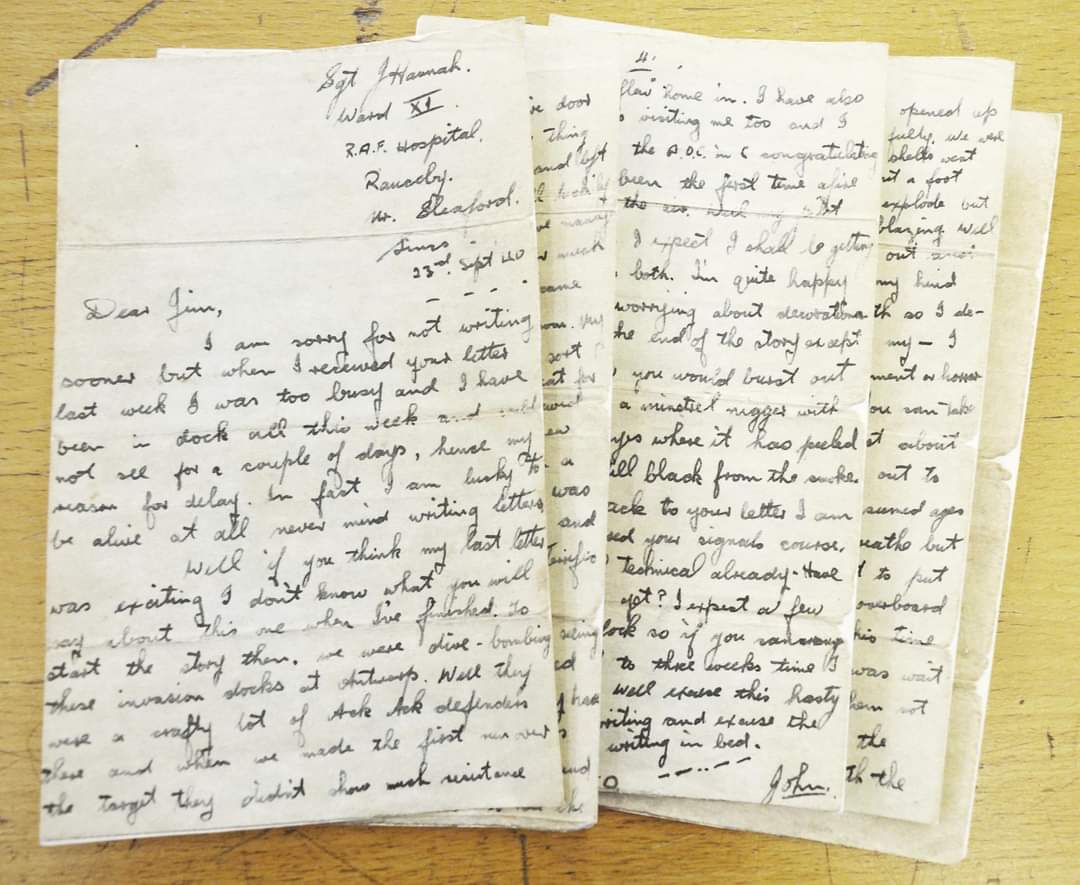 Sgt J Hannah.
Ward XI.
R.A.F. Hospital,
Rauceby.
Nr. Sleaford.
Lincs
23rd. Sept 40
Dear Jim,
I am sorry for not writing
sooner but when I received your letter
last week I was too busy and I have
been in dock all this week and could
not see for a couple of days, hense my
reason for delay. In fact I am lucky to
be alive at all never mind writing letters,
Well if you think my last letter
was exciting I don't know what you will
say about this one when I've finished. To
start the story then, we were dive-bombing
these invasion docks at Antwerp. Well they
were a crafty lot of Ack Ack defenders
there and when we made the first run over
the target they didn't show much resistance
door
thing
and left
much
came
My
sort
for
a
was
and
terrific
seeing
the
4.
flew home in. I have also
visiting me too and I
the A.O.C. in C congratulating
been the first time alive
the air. With my
I expect I shall be getting
both. I'm quite happy
worrying about decorations
the end of the story except
you would burst out
a minstrel nigger with
eyes where it has peeled
still black from the smoke.
back to your letter I am
your signals course.
technical already. Have
yet? I expect a few
so if you can
to three weeks time I
Well excuse this hasty
writing and excuse the
writing in bed.
John.
opened up
fully. We were
shells went
a foot
explode but
blazing. Well
out
my hind
so I de-
my — I
or horror
you can take
about
out to
ages
but
to put
overboard
his time
was wait
not
the
the